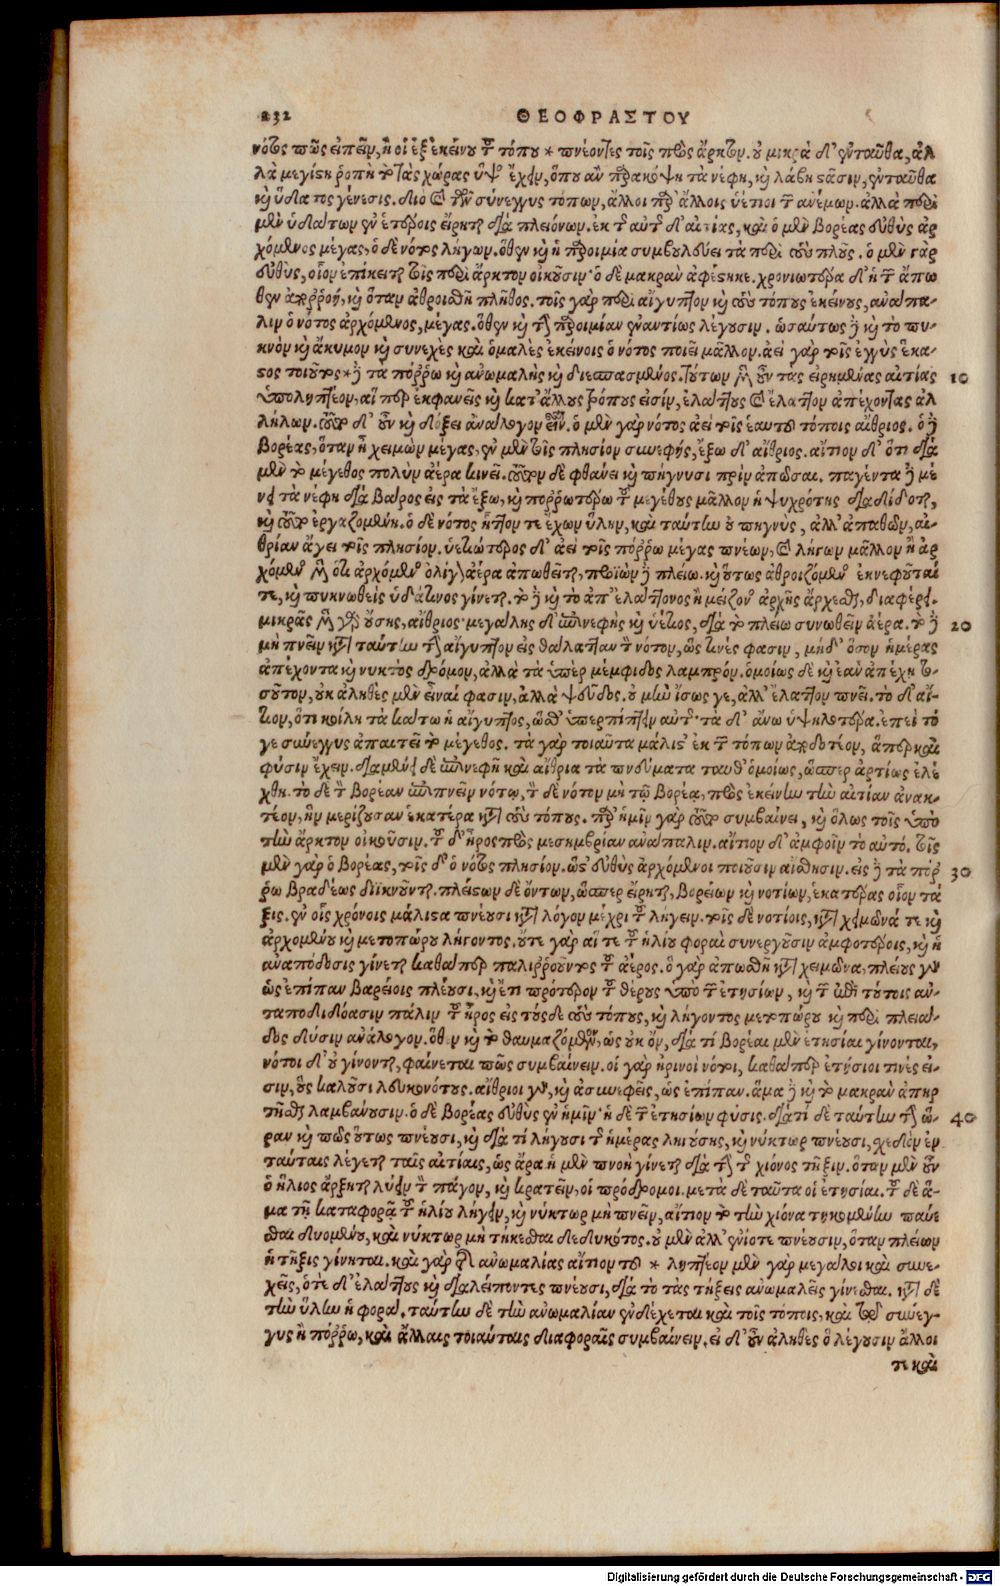 232 ΘΕΟΦΡΑΣΤΟΥ
νότος πῶς εἰπεῖν, ἢ οἱ ἐξ ἐκείνου τοῦ τόπου * πνέοντες τοῖς πρὸς ἄρκτον. οὐ μικρὰ δ' ἐνταῦθα, ἀλ
λὰ μεγίστη ῥοπὴ τὸ τὰς χώρας ὕψος ἔχειν, ὅπου ἂν προσκόψη τὰ νέφη, καὶ λάβη στάσιν, ἐνταῦθα
καὶ ὕδατος γένεσις. διὸ καὶ τῶν σύνεγγυς τόπων, ἄλλοι παρ' ἄλλοις ὑέτιοι τῶν ἀνέμων. ἀλλὰ περὶ
μὲν ὑδάτων ἐν ἑτέροις εἴρηται διὰ πλειόνων. ἐκ τῆς αὐτῆς δ' αἰτίας, καὶ ὁ μὲν βορέας εὐθὺς ἀρ
χόμενος μέγας, ὁ δὲ νότος λήγων. ὅθεν καὶ ἡ παροιμία συμβουλεύει τὰ περὶ τοὺς πλοῦς. ὁ μὲν γὰρ
εὐθὺς, οἷον ἐπίκειται τοῖς περὶ ἄρκτον οἰκοῦσιν· ὁ δὲ μακρὰν ἀφέστηκε. χρονιωτέρα δ' ἡ τῶν ἄπω
θεν ἀπορροή, καὶ ὅταν ἀθροισθῆ πλῆθος. τοῖς γὰρ περὶ αἴγυπτον καὶ τοὺς τόπους ἐκείνους, ἀνάπα-
λιν ὁ νότος ἀρχόμενος, μέγας. ὅθεν καὶ τὴν παροιμίαν ἐναντίως λέγουσιν. ὡσαύτως δὲ καὶ τὸ πυ-
κνὸν καὶ ἄκυμον καὶ συνεχὲς καὶ ὁμαλὲς ἐκείνοις ὁ νότος ποιεῖ μᾶλλον. ἀεὶ γὰρ τοῖς ἐγγὺς ἕκα-
στος τοιοῦτος * δὲ τὰ πόρρω καὶ ἀνωμαλὴς καὶ διεσπασμένος. τούτων μὲν οὖν τὰς εἰρημένας αἰτίας 10
ὑποληπτέον, αἵ περ ἐκφανεῖς καὶ κατ' ἄλλους τρόπους εἰσὶν, ἐλάττους καὶ ἔλαττον ἀπέχοντας ἀλ
λήλων. τοῦτο δ' οὖν καὶ δόξειεν ἀνάλογον εἶναι. ὁ μὲν γὰρ νότος ἀεὶ τοῖς ἑαυτοῦ τόποις αἴθριος. ὁ δὲ
βορέας, ὅταν ἦ χειμὼν μέγας, ἐν μὲν τοῖς πλησίον συννεφής, ἔξω δ' αἴθριος. αἴτιον δ' ὅτι διὰ
μὲν τὸ μέγεθος πολὺν ἀέρα κινεῖ. τοῦτον δὲ φθάνει καὶ πήγνυσι πρὶν ἀπῶσαι. παγέντα δὲ μέ
νει τὰ νέφη διὰ βάρος εἰς τὰ ἔξω, καὶ πορρωτέρω τοῦ μεγέθους μᾶλλον ἡ ψυχρότης διαδίδοται,
καὶ τοῦτο ἐργαζομένη. ὁ δὲ νότος ἧττόν τε ἔχων ὕλην, καὶ ταύτην οὐ πηγνὺς, ἀλλ' ἀπωθῶν, αἰ-
θρίαν ἄγει τοῖς πλησίον. ὑετιώτερος δ' ἀεὶ τοῖς πόρρω μέγας πνέων, καὶ λήγων μᾶλλον ἢ ἀρ
χόμενος μὲν ὅτι ἀρχόμενος ὀλίγον ἀέρα ἀπωθεῖται, προϊὼν δὲ πλείω. καὶ οὕτως ἀθροιζόμενος ἐκνεφοῦταί
τε, καὶ πυκνωθεὶς ὑδάτινος γίνεται. τὸ δὲ καὶ τὸ ἀπ' ἐλάττονος ἢ μείζονος ἀρχῆς ἄρχεσθαι, διαφέρει.
μικρᾶς μὲν γὰρ οὔσης, αἴθριος· μεγάλης δ' ἐπινεφὴς καὶ ὑέτιος, διὰ τὸ πλείω συνωθεῖν ἀέρα. τὸ δὲ 20
μὴ πνεῖν κατὰ ταύτην τὴν αἴγυπτον εἰς θάλατταν τὸν νότον, ὥς τινές φασιν, μηδ' ὅσον ἡμέρας
ἀπέχοντα καὶ νυκτὸς δρόμον, ἀλλὰ τὰ ὑπὲρ μέμφιδος λαμπρόν. ὁμοίως δὲ καὶ ἐὰν ἀπέχη το-
σοῦτον, οὐκ ἀληθὲς μὲν εἶναί φασιν, ἀλλὰ ψεῦδος. οὐ μὴν ἴσως γε, ἀλλ' ἔλαττον πνεῖ. τὸ δ' αἴ-
τιον, ὅτι κοίλη τὰ κάτω ἡ αἴγυπτος, ὥσθ' ὑπερπίπτειν αὐτῆς· τὰ δ' ἄνω ὑψηλοτέρα. ἐπεὶ τό
γε σύνεγγυς ἀπαιτεῖ τὸ μέγεθος. τὰ γὰρ τοιαῦτα μάλιστ' ἐκ τῶν τόπων ἀποδοτέον, ἅπερ καὶ
φύσιν ἔχειν. διαμένει δὲ ἐπινεφῆ καὶ αἴθρια τὰ πνεύματα ταῦθ' ὁμοίως, ὥσπερ ἀρτίως ἐλέ
χθη. τὸ δὲ τὸν βορέαν ἐπιπνεῖν νότῳ, τὸν δὲ νότον μὴ τῷ βορέᾳ, πρὸς ἐκείνην τὴν αἰτίαν ἀνακ-
τέον, ἣν μερίζουσαν ἑκατέρα κατὰ τοὺς τόπους. παρ' ἡμῖν γὰρ τοῦτο συμβαίνει, καὶ ὅλως τοῖς ὑπὸ
τὴν ἄρκτον οἰκοῦσιν. τοῦ δ' ἦρος πρὸς μεσημβρίαν ἀνάπαλιν. αἴτιον δ' ἀμφοῖν τὸ αὐτό. τοῖς
μὲν γὰρ ὁ βορέας, τοῖς δ' ὁ νότος πλησίον. ὥστ' εὐθὺς ἀρχόμενοι ποιοῦσιν αἴσθησιν. εἰς δὲ τὰ πόρ 30
ρω βραδέως διϊκνοῦνται. πλείστων δὲ ὄντων, ὥσπερ εἴρηται, βορείων καὶ νοτίων, ἑκατέρας οἷον τά
ξις. ἐν οἷς χρόνοις μάλιστα πνέουσι κατὰ λόγον μέχρι τοῦ λήγειν. τοῖς δὲ νοτίοις, κατὰ χειμῶνά τε καὶ
ἀρχομένου καὶ μετοπώρου λήγοντος. οὔτε γὰρ αἵ τε τοῦ ἡλίου φοραὶ συνεργοῦσιν ἀμφοτέροις, καὶ ἡ
ἀναπόδοσις γίνεται καθάπερ παλιρροοῦντος τοῦ ἀέρος. ὃ γὰρ ἀπωσθῆ κατὰ χειμῶνα, πλείους γὰρ
ὡς ἐπίπαν βορείοις πλέουσι, καὶ ἔτι πρότερον τοῦ θέρους ὑπὸ τῶν ἐτησίων, καὶ τῶν ἐπὶ τούτοις ἀν-
ταποδιδόασιν πάλιν τοῦ ἦρος εἰς τούσδε τοὺς τόπους, καὶ λήγοντος μετοπώρου καὶ περὶ πλειά-
δος δύσιν ἀνάλογον. ὅθεν καὶ τὸ θαυμαζόμενον, ὡς οὐκ ὄν, διὰ τί βορέαι μὲν ἐτησίαι γίνονται,
νότοι δ' οὐ γίνονται, φαίνεταί πως συμβαίνειν. οἱ γὰρ ἠρινοὶ νότοι, καθάπερ ἐτησίοι τινές εἰ-
σιν, οὓς καλοῦσι λευκονότους. αἴθριοι γὰρ, καὶ ἀσυννεφεῖς, ὡς ἐπίπαν. ἅμα δὲ καὶ τὸ μακρὰν ἀπηρ
τῆσθαι λαμβάνουσιν. ὁ δὲ βορέας εὐθὺς ἐν ἡμῖν· ἡ δὲ τῶν ἐτησίων φύσις. διὰ τί δὲ ταύτην τὴν ὥ- 40
ραν καὶ πῶς οὕτως πνέουσι, καὶ διὰ τί λήγουσι τῆς ἡμέρας ληγούσης, καὶ νύκτωρ πνέουσι, σχεδὸν ἐν
ταύταις λέγεται ταῖς αἰτίαις, ὡς ἄρα ἡ μὲν πνοὴ γίνεται διὰ τὴν τῆς χιόνος τῆξιν. ὅταν μὲν οὖν
ὁ ἥλιος ἄρξηται λύειν τὸν πάγον, καὶ κρατεῖν, οἱ πρόδρομοι. μετὰ δὲ ταῦτα οἱ ἐτησίαι. τοῦ δὲ ἅ-
μα τῇ καταφορᾷ τοῦ ἡλίου λήγειν, καὶ νύκτωρ μὴ πνεῖν, αἴτιον τὸ τὴν χιόνα τηκομένην παύε
σθαι δυομένου, καὶ νύκτωρ μὴ τήκεσθαι δεδυκότος. οὐ μὲν ἀλλ' ἐνίοτε πνέουσιν, ὅταν πλείων
ἡ τῆξις γίνηται. καὶ γὰρ τῆς ἀνωμαλίας αἴτιον τοῦ * ληπτέον μὲν γὰρ μεγάλοι καὶ συνε-
χεῖς, ὁτὲ δ' ἐλάττους καὶ διαλείποντες πνέουσι, διὰ τὸ τὰς τήξεις ἀνωμαλεῖς γίνεσθαι. κατὰ δὲ
τὴν ὕλην ἡ φορά. ταύτην δὲ τὴν ἀνωμαλίαν ἐνδέχεται καὶ τοῖς τόποις, καὶ τῷ σύνεγ-
γυς ἢ πόρρω, καὶ ἄλλαις τοιαύταις διαφοραῖς συμβαίνειν. εἰ δ' οὖν ἀληθὲς ὃ λέγουσιν ἄλλοι
τι καὶ
Digitalisierung gefördert durch die Deutsche Forschungsgemeinschaft - DFG